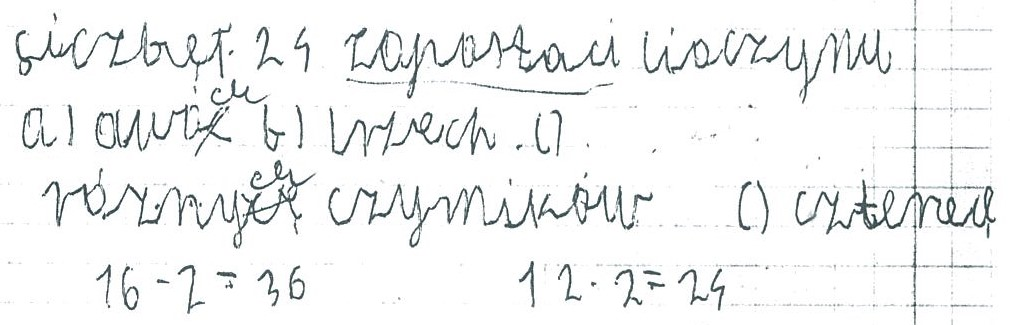 liczbęt. 24 zapostaci iloczynu
a) dwóch b) trzech. c)
różnych czynników c) czterech
16 - 2 = 36 12 · 2 = 24